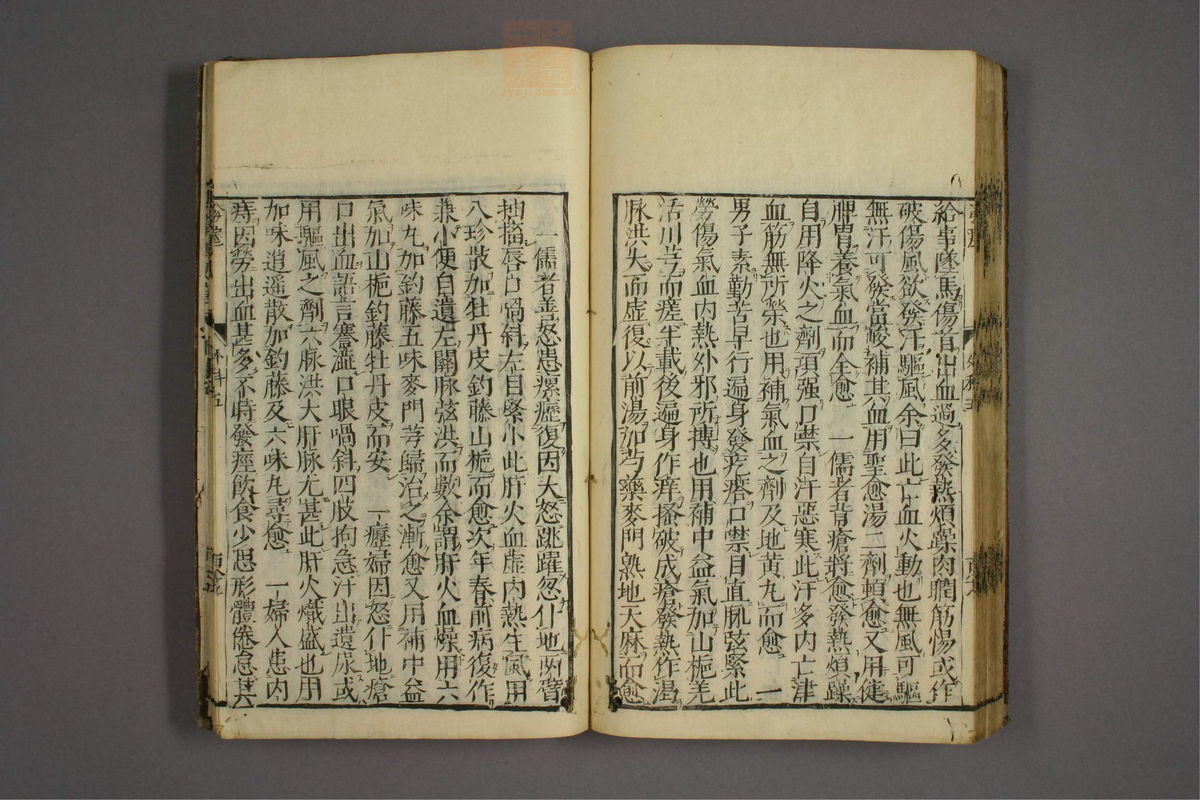 給事墜馬傷首出血過多發熱煩躁肉瞤筋惕或作
破傷風欲發汗驅風余曰此亡血火動也無風可驅
無汗可發當峻補其血用聖愈湯二劑頓愈又用健
脾胃養氣血而全愈 一儒者背瘡將愈發熱煩躁
自用降火之劑項强口噤自汗惡寒此汗多內亡津
血筋無所榮也用補氣血之劑及地黃丸而愈 一
男子素勤苦早行遍身發疙瘩口噤目直脈弦緊此
勞傷氣血內熱外邪所搏也用補中益氣加山梔羌
活川芎而痊半載後遍身作痒搔破成瘡發熱作渴
脉洪大而虛復以前湯加芍藥麥門熟地天麻而愈
一儒者善怒患瘰癧復因大怒跳躍忽仆地兩臂
抽搐唇口喎斜左目緊小此肝火血虛內熱生風用
八珍散加牡丹皮鈎藤山梔而愈次年春前病復作
兼小便自遺左關脉弦洪而數余謂肝火血燥用六
味丸加鈎藤五味麥門芎歸治之漸愈又用補中益
氣加山梔鈎藤牡丹皮而安 一瘧婦因怒仆地瘡
口出血語言蹇澁口眼喎斜四肢拘急汗出遺尿或
用驅風之劑六脉洪大肝脉尤甚此肝火熾盛也用
加味逍遙散加鈎藤及六味丸尋愈 一婦人患內
痔因勞出血甚多不時發痙飲食少思形體倦怠其
外科五